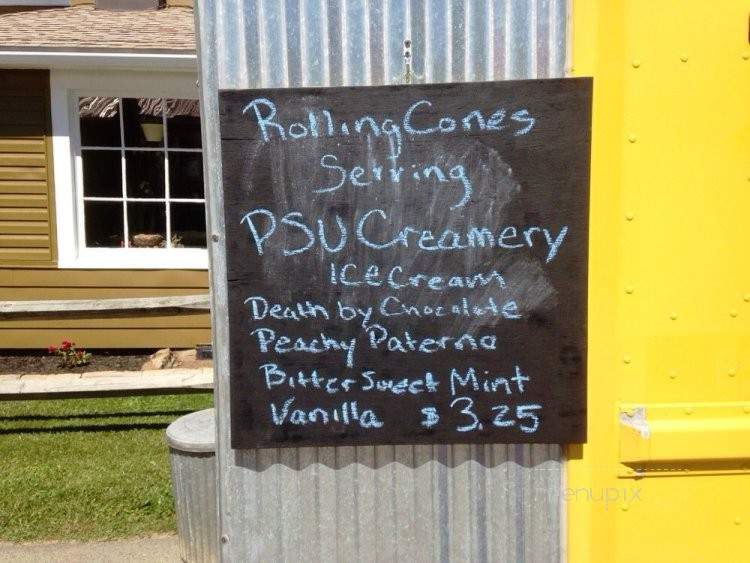 Rolling Cones
Serving
PSU Creamery
Ice Cream
Death by Chocolate
Peachy Paterno
Bitter Sweet Mint
Vanilla $3.25
menupix